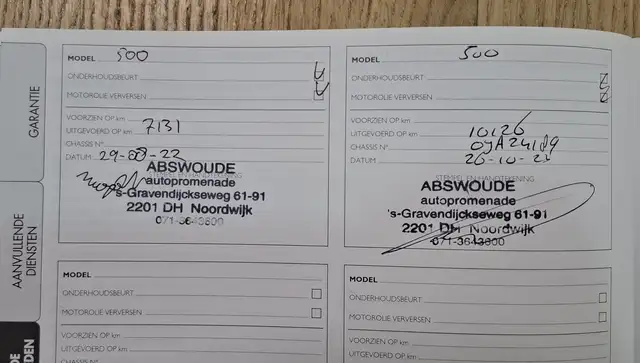 GARANTIE
AANVULLENDE
DIENSTEN
DE
DEN
MODEL 500
ONDERHOUDSBEURT
MOTOROLIE VERVERSEN
VOORZIEN OP km
UITGEVOERD OP km 7131
CHASSIS N°
DATUM 29-08-22
STEMPEL EN HANDTEKENING
ABSWOUDE
autopromenade
's-Gravendijckseweg 61-91
2201 DH Noordwijk
071-3643800
MODEL 500
ONDERHOUDSBEURT
MOTOROLIE VERVERSEN
VOORZIEN OP km
UITGEVOERD OP km 10126
CHASSIS N°
DATUM 26-10-23
STEMPEL EN HANDTEKENING
ABSWOUDE
autopromenade
's-Gravendijckseweg 61-91
2201 DH Noordwijk
071-3643800
MODEL
ONDERHOUDSBEURT
MOTOROLIE VERVERSEN
VOORZIEN OP km
UITGEVOERD OP km
CHASSIS N°
MODEL
ONDERHOUDSBEURT
MOTOROLIE VERVERSEN
VOORZIEN OP km
UITGEVOERD OP km